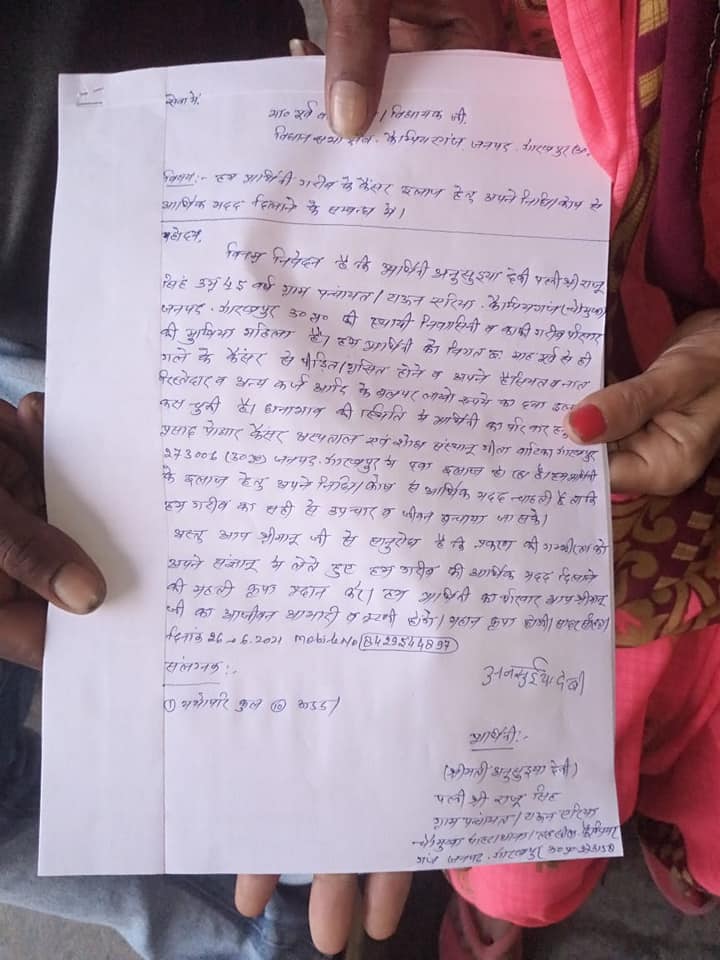 सेवा में,
मा० पूर्व / विधायक जी,
विधान सभा क्षेत्र- कैम्पियरगंज, जनपद- गोरखपुर
विषय:- हम प्रार्थिनी गरीब के कैंसर इलाज हेतु अपने निधि/कोष से
आर्थिक मदद दिलाने के सम्बन्ध में।
महोदय,
विनम्र निवेदन है कि प्रार्थिनी अनुसुइया देवी पत्नी श्री राजू
सिंह उम्र 45 वर्ष ग्राम पंचायत/ कैम्पियरगंज
जनपद- गोरखपुर उ०प्र० की स्थायी निवासिनी व काफी गरीब परिवार
की मुखिया महिला है। हम प्रार्थिनी को विगत छः माह पूर्व से ही
गले के कैंसर से पीड़ित/ग्रसित होने व अपने हैसियत व नात
रिस्तेदार व अन्य कर्ज आदि के बलपर लाखो रूपये का दवा
करा चुकी है। धनाभाव की स्थिति में प्रार्थिनी का परिवार
प्रसाद पोद्दार कैंसर अस्पताल एवं शोध संस्थान गीता वाटिका गोरखपुर
273006 (उ०प्र०) जनपद- गोरखपुर में दवा इलाज हो रहा है। हम प्रार्थिनी
के इलाज हेतु अपने निधि/कोष से आर्थिक मदद चाहती है ताकि
हम गरीब का सही से उपचार व जीवन बचाया जा सके।
अस्तु आप श्रीमान् जी से सानुरोध है कि प्रकरण की गम्भीरता को
अपने संज्ञान में लेते हुए हम गरीब की आर्थिक मदद दिलाने
की महती कृपा प्रदान करें। हम प्रार्थिनी का परिवार आप श्रीमान्
जी का आजीवन आभारी व ऋणी होंगे। महान कृपा होगी।
दिनांक 26-6-2021 Mobile No 8429544897
संलग्नक:-
① यथोपरि कुल ⑩ अदद।
अनसुईया देवी
प्रार्थिनी:-
(श्रीमती अनुसुइया देवी)
पत्नी श्री राजू सिंह
ग्राम पंचायत/
जनपद- गोरखपुर उ०प्र०